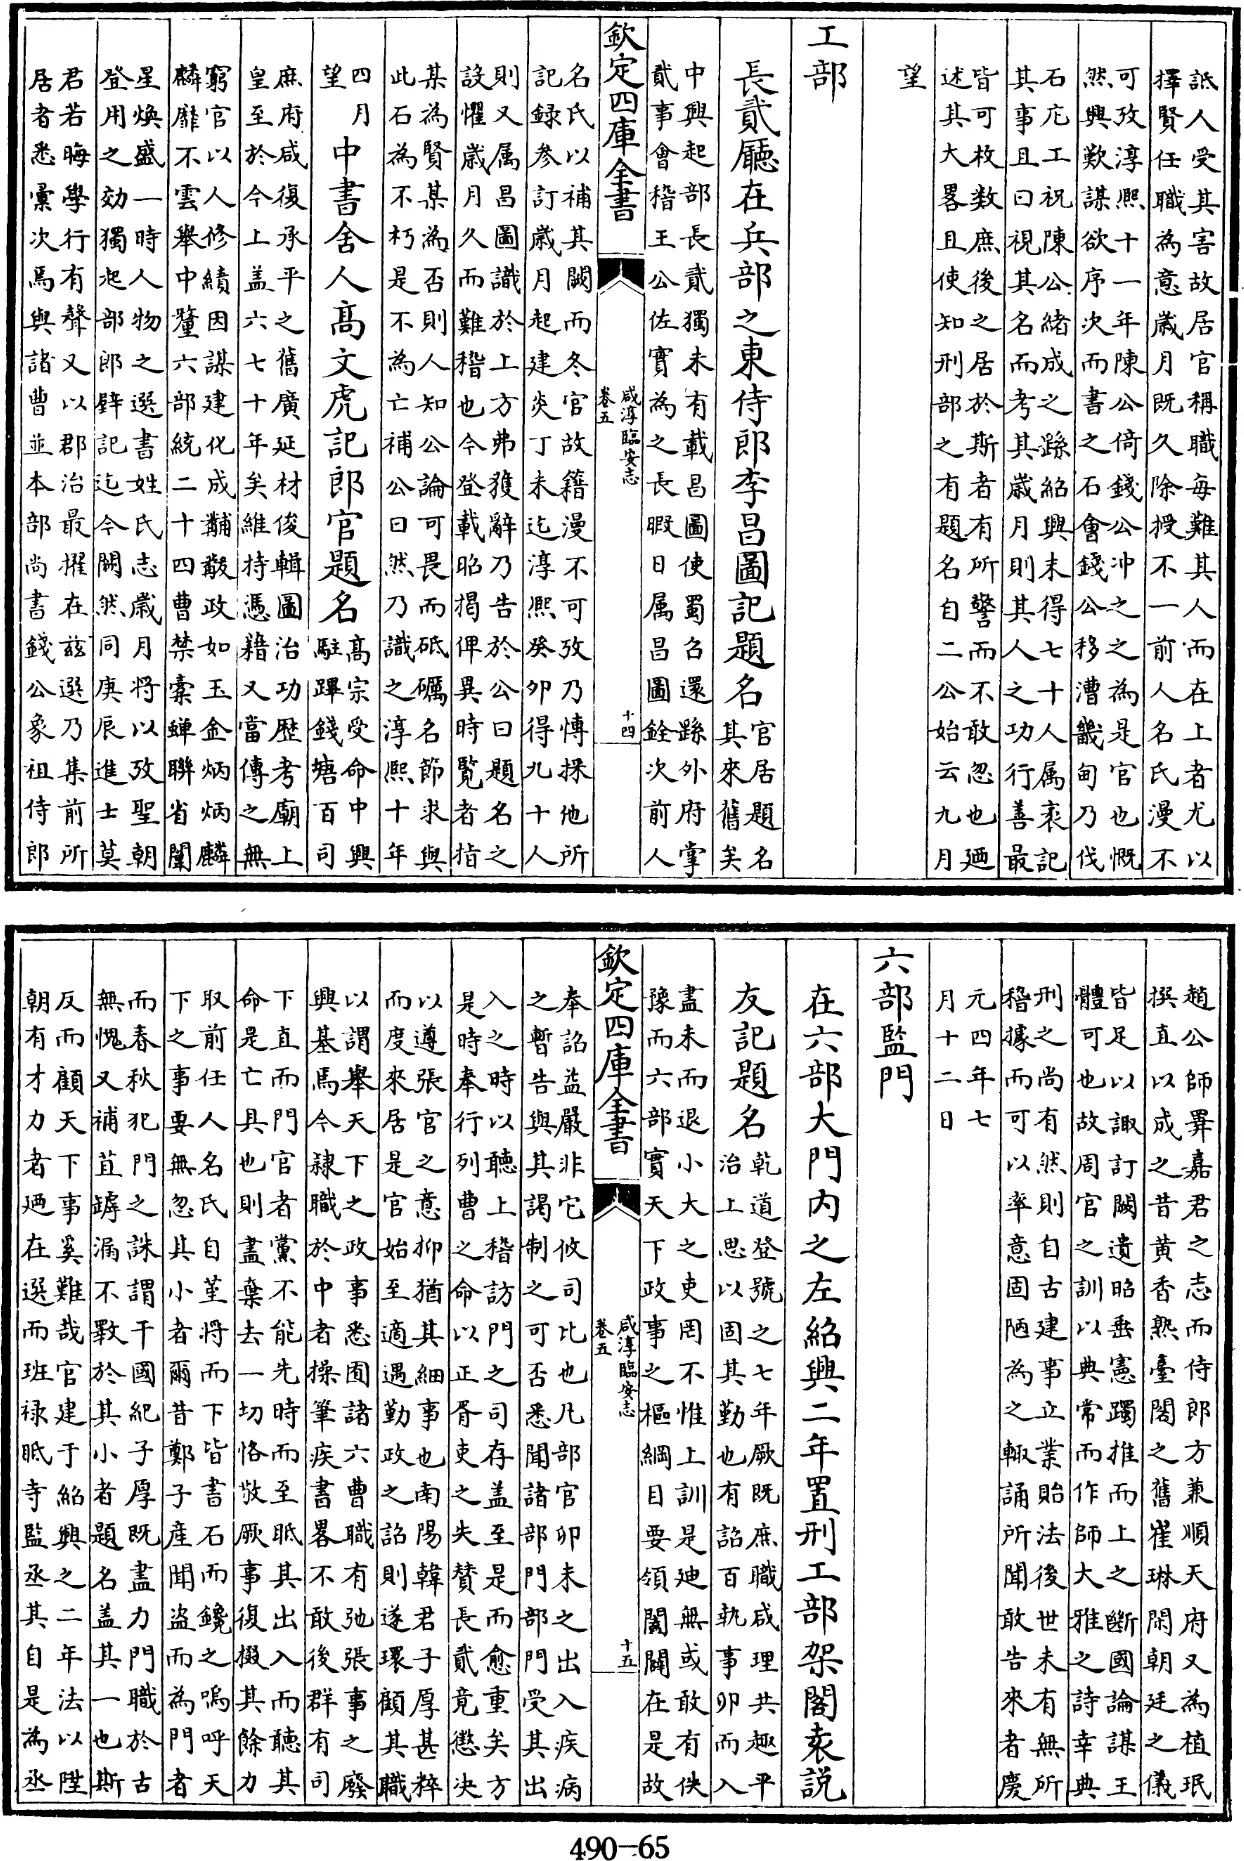 詆人受其害故居官稱職每難其人而在上者尤以
擇賢任職為意歲月既久除授不一前人名氏漫不
可攷淳熙十一年陳公倚錢公冲之之為是官也慨
然興歎謀欲序次而書之石會錢公移漕畿甸乃伐
石庀工祝陳公緒成之繇紹興末得七十人属袤記
其事且曰視其名而考其歲月則其人之功行善最
皆可枚数庶後之居於斯者有所警而不敢忽也廼
述其大畧且使知刑部之有題名自二公始云九月
望
工部
長貳廳在兵部之東侍郎李昌圖記題名
官居題名
其來舊矣
中興起部長貳獨未有載昌圖使蜀召還繇外府掌
貳事會稽王公佐實為之長暇日属昌圖銓次前人
欽定四庫全書
咸淳臨安志
卷五
十四
名氏以補其闕而冬官故籍漫不可攷乃博採他所
記録參訂歲月起建炎丁未迄淳熙癸卯得九十人
則又属昌圖識於上方弗獲辭乃告於公曰題名之
設懼歲月久而難稽也今登載昭揭俾異時覽者指
某為賢某為否則人知公論可畏而砥礪名節求與
此石為不朽是不為亡補公曰然乃識之淳熙十年
四月
望
中書舍人髙文虎記郎官題名
髙宗受命中興
駐蹕錢塘百司
庶府咸復承平之舊廣延材俊輯圖治功歷考廟上
皇至於今上盖六七十年矣維持憑藉又當傳之無
窮官以人修績因謀建化成黼黻政如玉金炳炳麟
麟靡不雲舉中釐六部統二十四曹禁橐蟬聯省闥
星煥盛一時人物之選書姓氏志歲月將以攷聖朝
登用之効獨起部郎辟記迄今闕然同庚辰進士莫
君若晦學行有聲又以郡治最擢在兹選乃集前所
居者悉彙次焉與諸曹並本部尚書錢公象祖侍郎
趙公師羼嘉君之志而侍郎方兼順天府又為植珉
撰直以成之昔黄香熟臺閣之舊崔琳閑朝廷之儀
皆足以諏訂闕遺昭垂憲躅推而上之斷國論謀王
體可也故周官之訓以典常而作師大雅之詩幸典
刑之尚有然則自古建事立業貽法後世未有無所
稽據而可以率意固陋為之輙誦所聞敢告來者慶
元四年七
月十二日
六部監門
在六部大門内之左紹興二年置刑工部架閣袁説
友記題名
乾道登號之七年厥既庶職咸理共趣平
治上思以固其勤也有詔百執事卯而入
盡未而退小大之吏罔不惟上訓是廸無或敢有佚
豫而六部實天下政事之樞綱目要領闔闢在是故
欽定四庫全書
咸淳臨安志
卷五
十五
奉詔益嚴非它攸司比也凡部官卯未之出入疾病
之暫告與其謁制之可否悉聞諸部門部門受其出
入之時以聽上稽訪門之司存盖至是而愈重矣方
是時奉行列曹之命以正胥吏之失賛長貳竟懲决
以遵張官之意抑猶其細事也南陽韓君子厚甚粹
而度來居是官始至適遇勤政之詔則遂環顧其職
以謂舉天下之政事悉囿諸六曹職有弛張事之廢
興基焉今隷職於中者操筆疾書畧不敢後群有司
下直而門官者黨不能先時而至眂其出入而聽其
命是亡具也則盡棄去一切恪敬厥事復掇其餘力
取前任人名氏自某將而下皆書石而鑱之嗚呼天
下之事要無忽其小者爾昔鄭子産聞盗而為門者
而春秋犯門之誅謂干國紀子厚既盡力門職於古
無愧又補苴罅漏不斁於其小者題名盖其一也斯
反而顧天下事奚難哉官建于紹興之二年法以陞
朝有才力者廼在選而班禄眂寺監丞其自是為丞
490-65